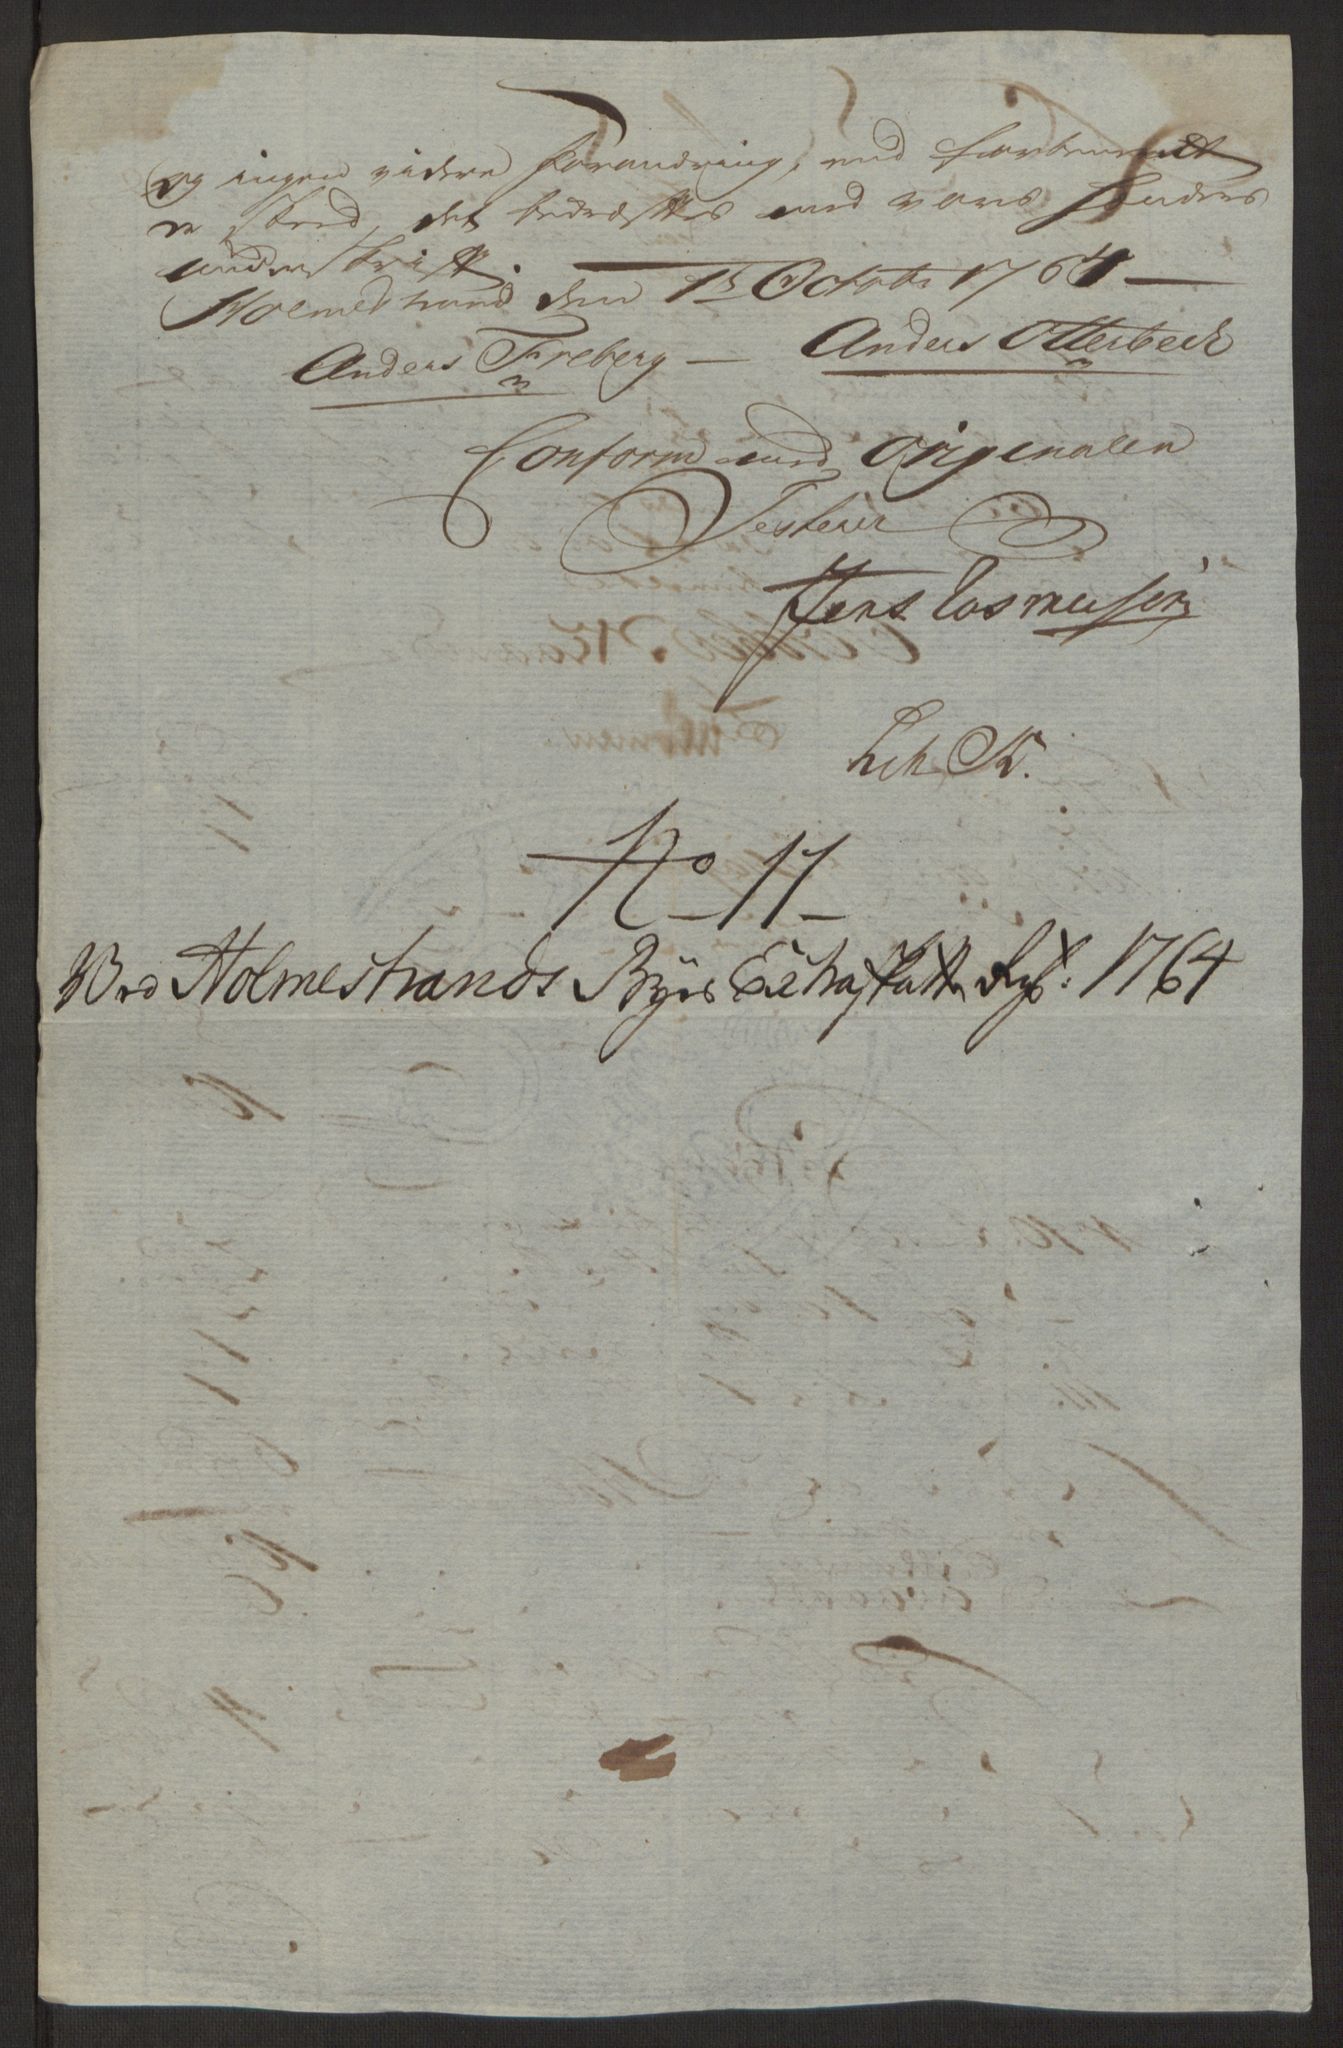 og ingen videre forandring, end forbemelt
er skeed, det bekræftes med vores hænders
underskrift.
Holmestrand den 1t Octobr 1764
Anders Freberg Anders Otterbeck
Conform med originalen
Testerer
Jens Rasmusen
No 11
Ved Holmestrands Byes Extra Skatte Rgsk: 1764